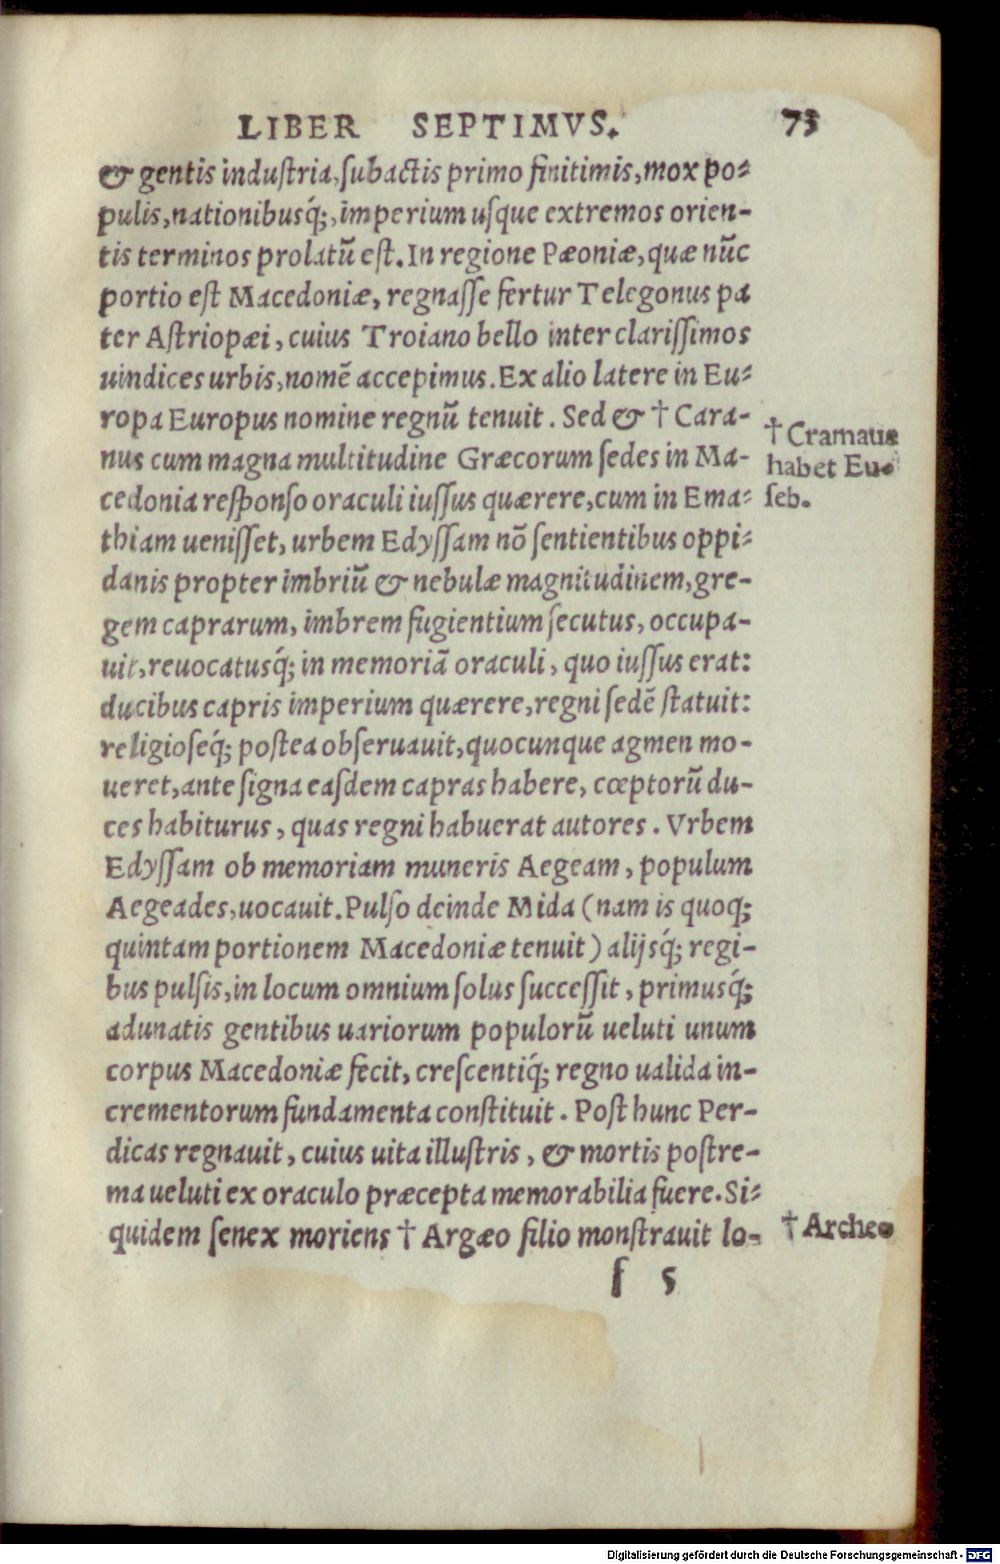 LIBER SEPTIMVS. 73
& gentis industria, subactis primo finitimis, mox po-
pulis, nationibusq́;, imperium usque extremos orien-
tis terminos prolatũ est. In regione Pæoniæ, quæ nũc
portio est Macedoniæ, regnasse fertur Telegonus pa
ter Astriopæi, cuius Troiano bello inter clarissimos
uindices urbis, nomẽ accepimus. Ex alio latere in Eu-
ropa Europus nomine regnũ tenuit. Sed & † Cara-
nus cum magna multitudine Græcorum sedes in Ma-
cedonia responso oraculi iussus quærere, cum in Ema-
thiam uenisset, urbem Edyssam nõ sentientibus oppi-
danis propter imbriũ & nebulæ magnitudinem, gre-
gem caprarum, imbrem fugientium secutus, occupa-
uit, reuocatusq́; in memoriã oraculi, quo iussus erat:
ducibus capris imperium quærere, regni sedẽ statuit:
religioseq́; postea obseruauit, quocunque agmen mo-
ueret, ante signa easdem capras habere, cœptorũ du-
ces habiturus, quas regni habuerat autores. Vrbem
Edyssam ob memoriam muneris Aegeam, populum
Aegeades, uocauit. Pulso deinde Mida (nam is quoq;
quintam portionem Macedoniæ tenuit) alijsq́; regi-
bus pulsis, in locum omnium solus successit, primusq́;
adunatis gentibus uariorum populorũ ueluti unum
corpus Macedoniæ fecit, crescentiq́; regno ualida in-
crementorum fundamenta constituit. Post hunc Per-
dicas regnauit, cuius uita illustris, & mortis postre-
ma ueluti ex oraculo præcepta memorabilia fuere. Si-
quidem senex moriens † Argæo filio monstrauit lo-
f 5
† Cramaus
habet Eu-
seb.
† Archeo
Digitalisierung gefördert durch die Deutsche Forschungsgemeinschaft - DFG